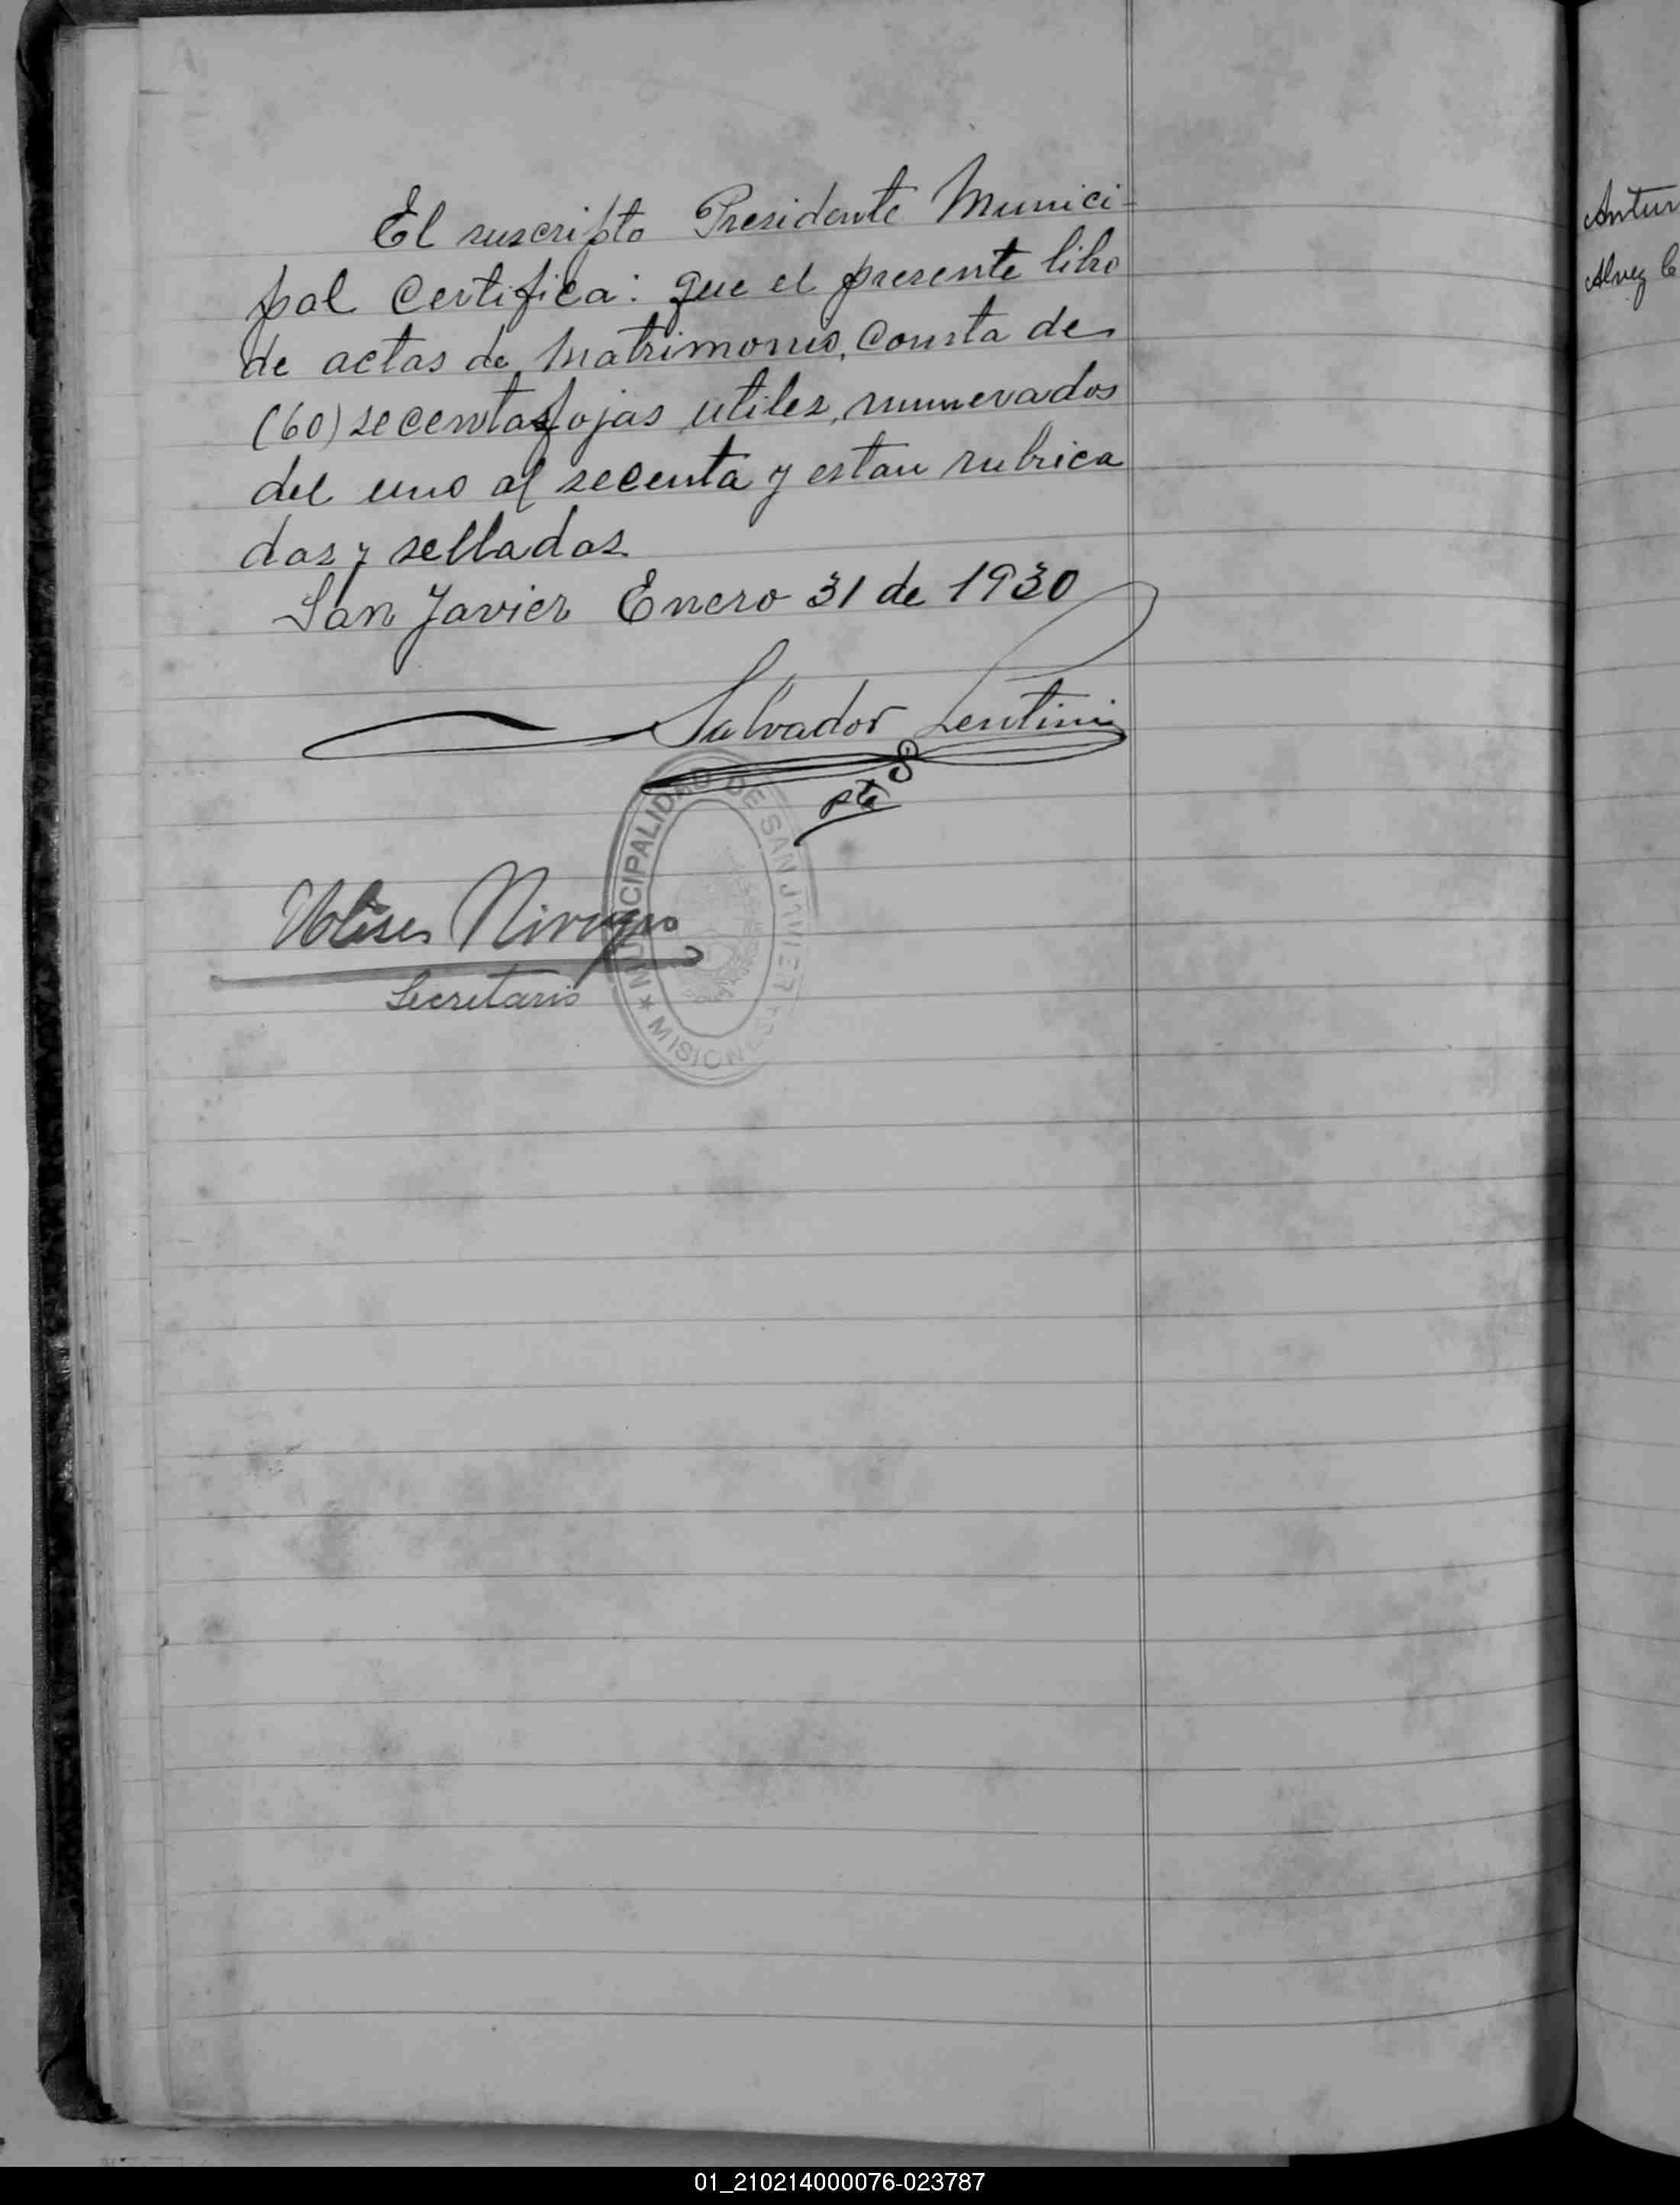 El suscripto Presidente Munici-
pal Certifica: que el presente libro
de actas de Matrimonio, consta de
(60) secentas fojas utiles, numerados
del uno al secenta y estan rubrica
das y sellados
San Javier Enero 31 de 1930
Salvador Lentini
Pte
Secretario
MUNICIPALIDAD DE SAN JAVIER
★ MISIONES
Antun
Alvez
01_210214000076-023787